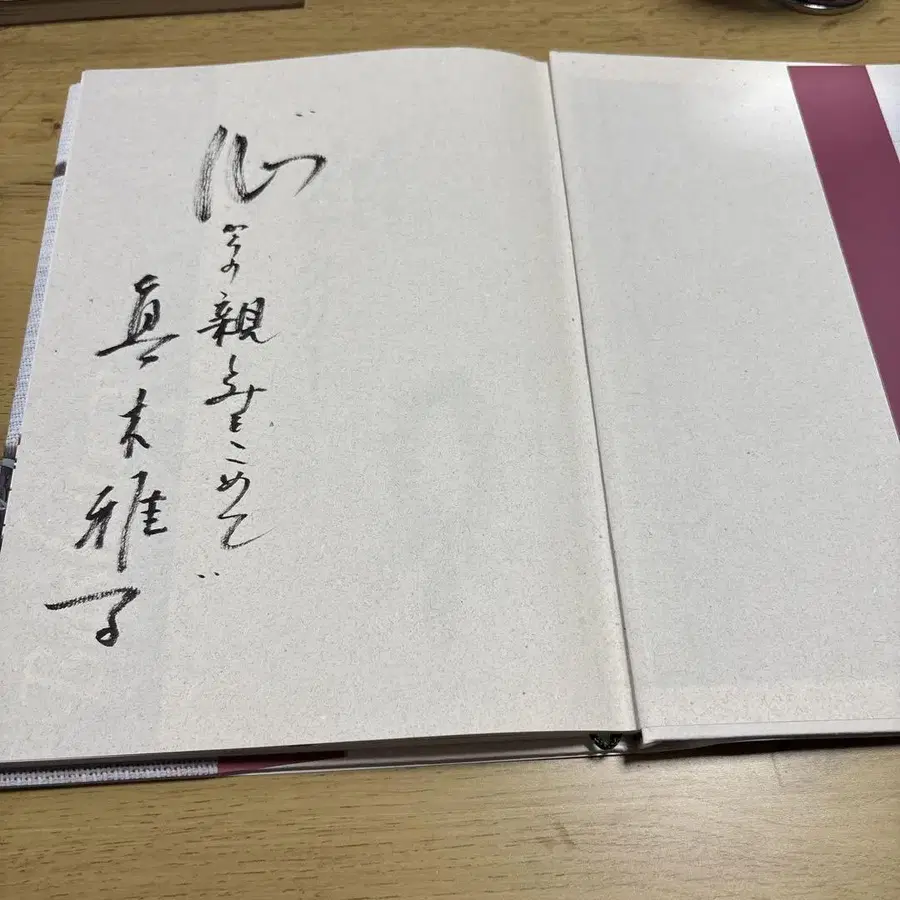 "心からの親しみをこめて"
真木雅子